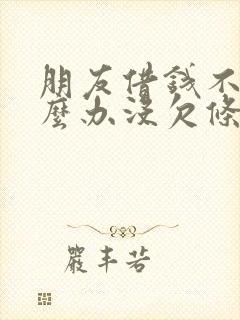 朋友借錢不
麼办沒欠條
嚴丰若